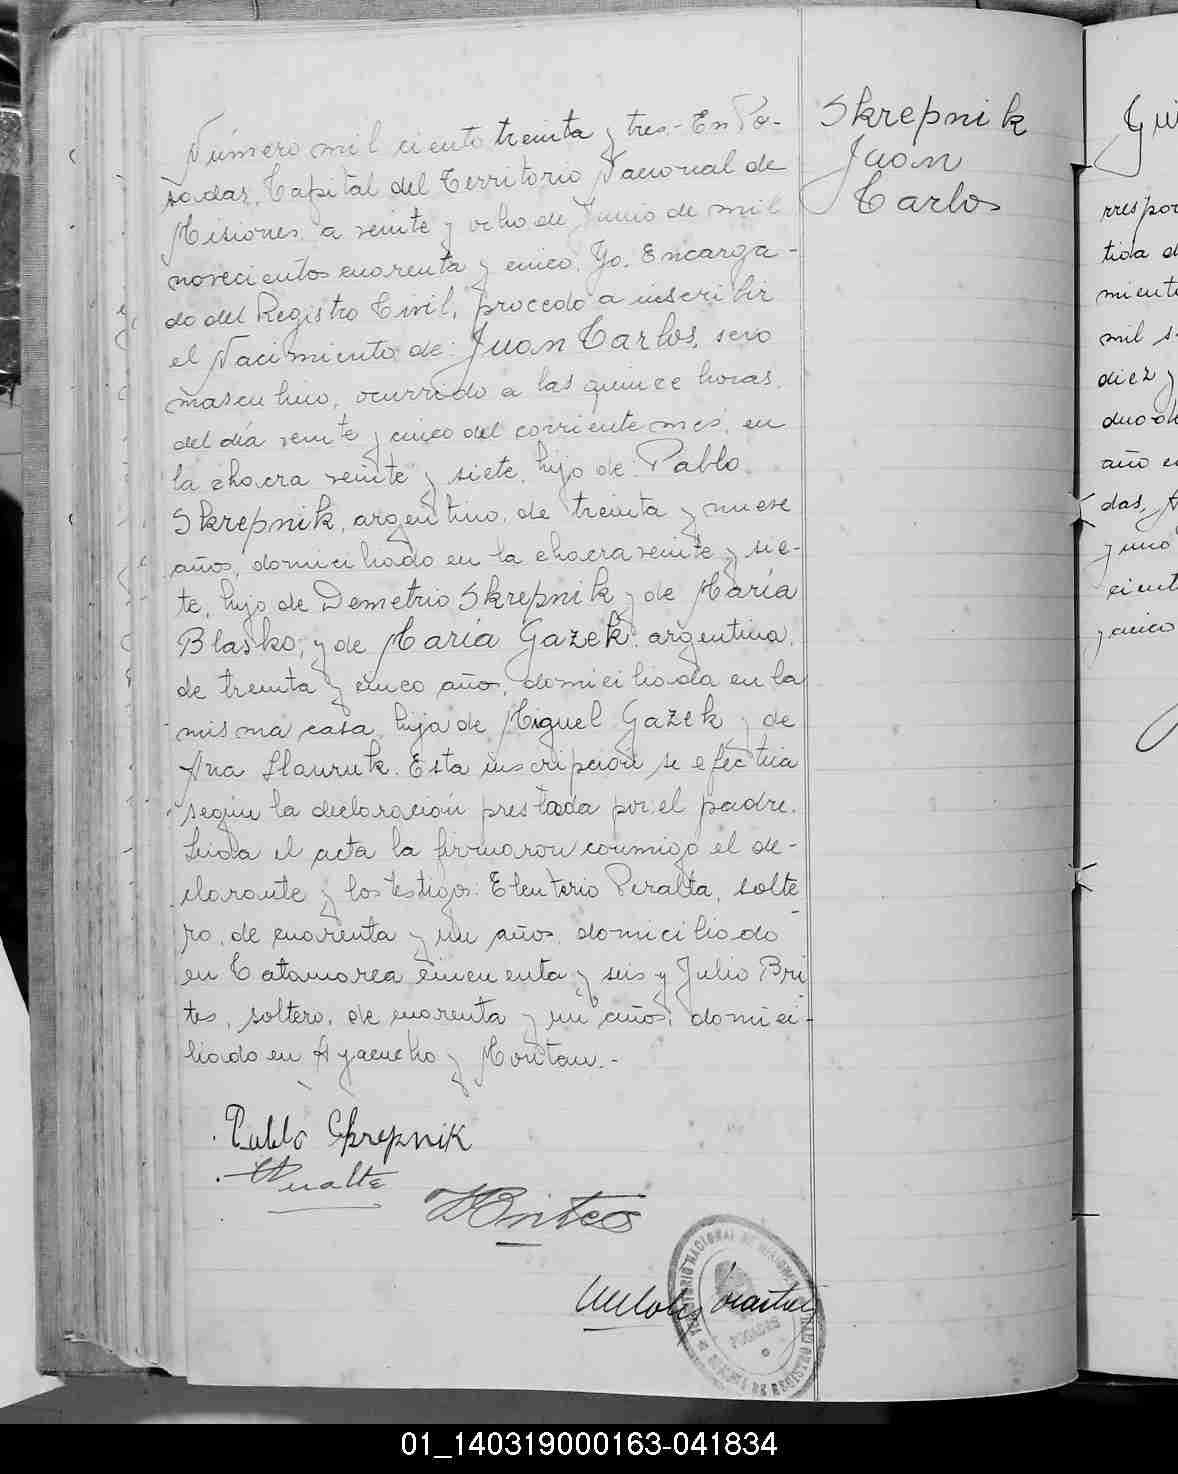 Skrepnik
Juan
Carlos
Número mil ciento treinta y tres.- En Po-
sadas, Capital del Territorio Nacional de
Misiones, a veinte y ocho de Junio de mil
novecientos cuarenta y cinco. Yo, Encarga-
do del Registro Civil, procedo a inscribir
el Nacimiento de: Juan Carlos, sexo
masculino, ocurrido a las quince horas,
del día veinte y cinco del corriente mes, en
la chacra veinte y siete, hijo de: Pablo
Skrepnik, argentino, de treinta y nueve
años, domiciliado en la chacra veinte y sie-
te, hijo de Demetrio Skrepnik y de María
Blasko; y de María Gazek, argentina,
de treinta y cinco años, domiciliada en la
misma casa, hija de Miguel Gazek y de
Ana Slauruk. Esta inscripción se efectúa
según la declaración prestada por el padre.
Leída el acta la firmaron conmigo el de-
clarante y los testigos: Eleuterio Peralta, solte
ro, de cuarenta y un años, domiciliado
en Catamarca cincuenta y seis y Julio Bri
tes, soltero, de cuarenta y un años, domici-
liado en Ayacucho y Moritan.-
Pablo Skrepnik
Peralta
JBrites
TERRITORIO NACIONAL DE MISIONES
POSADAS
REGISTRO
rrespon
tida d
miento
mil s
diez y
años e
das, A
y uno
cient
y cinco
01_140319000163-041834